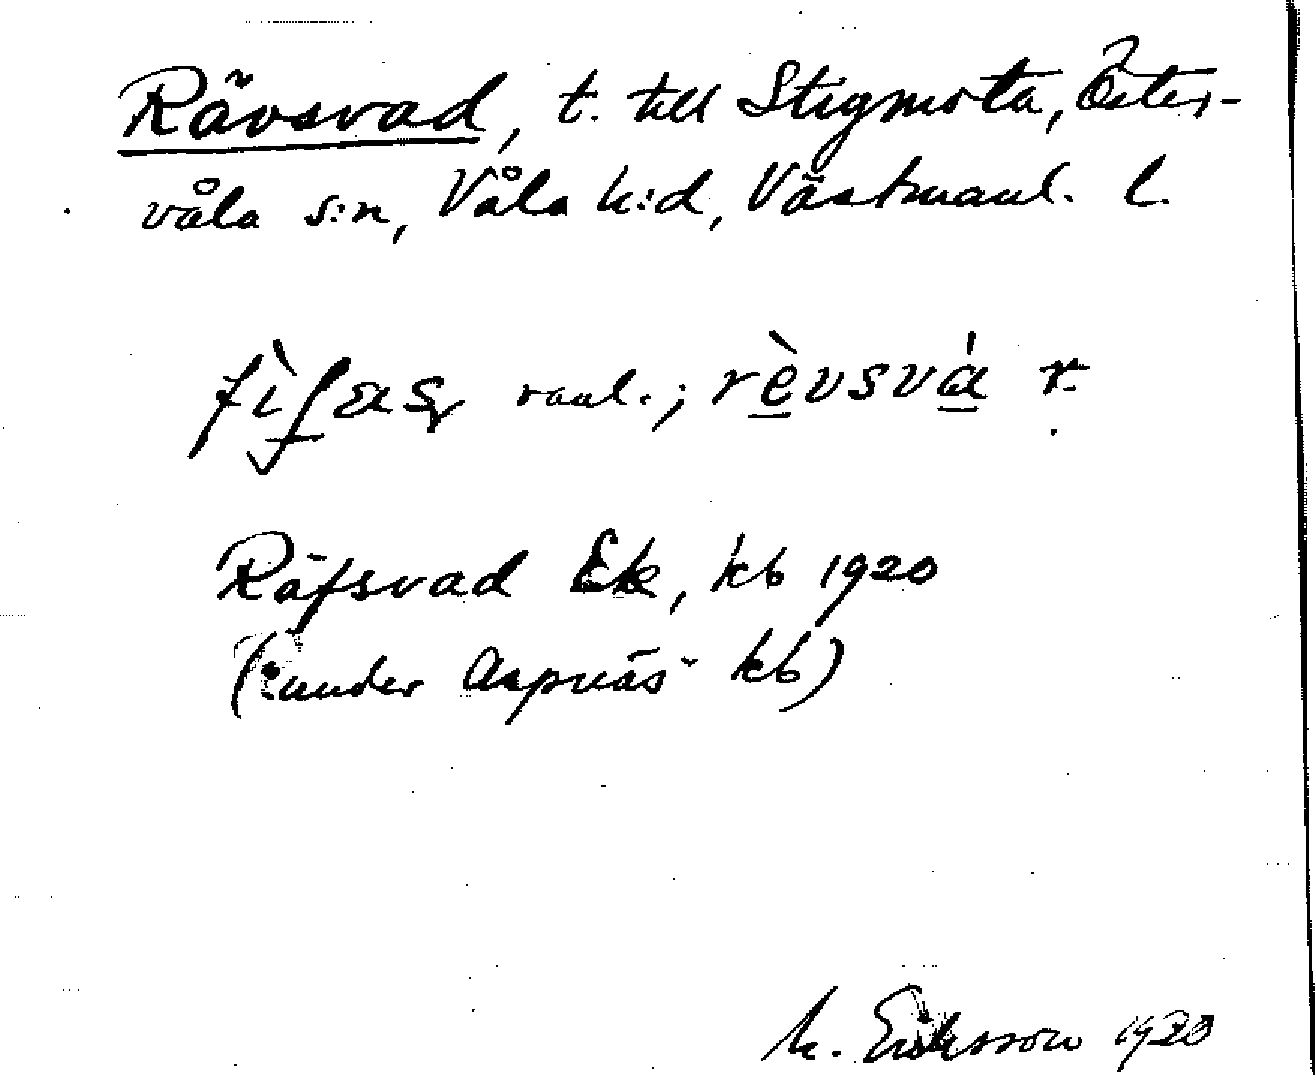 Rävsvad, t. till Stigmota, Öster-
våla s:n, Våla h:d, Västmanl. l.
vanl.; rèvsvá r.
Räfsvad Ek, kb 1920
(under Aspnäs kb)
M. Eriksson 1920